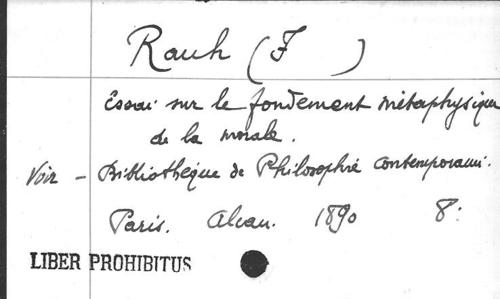 Rauh (F )
Essai sur le fondement métaphysique
de la morale.
Voir - Bibliothèque de Philosophie Contemporaine.
Paris. Alcan. 1890 8º
LIBER PROHIBITUS